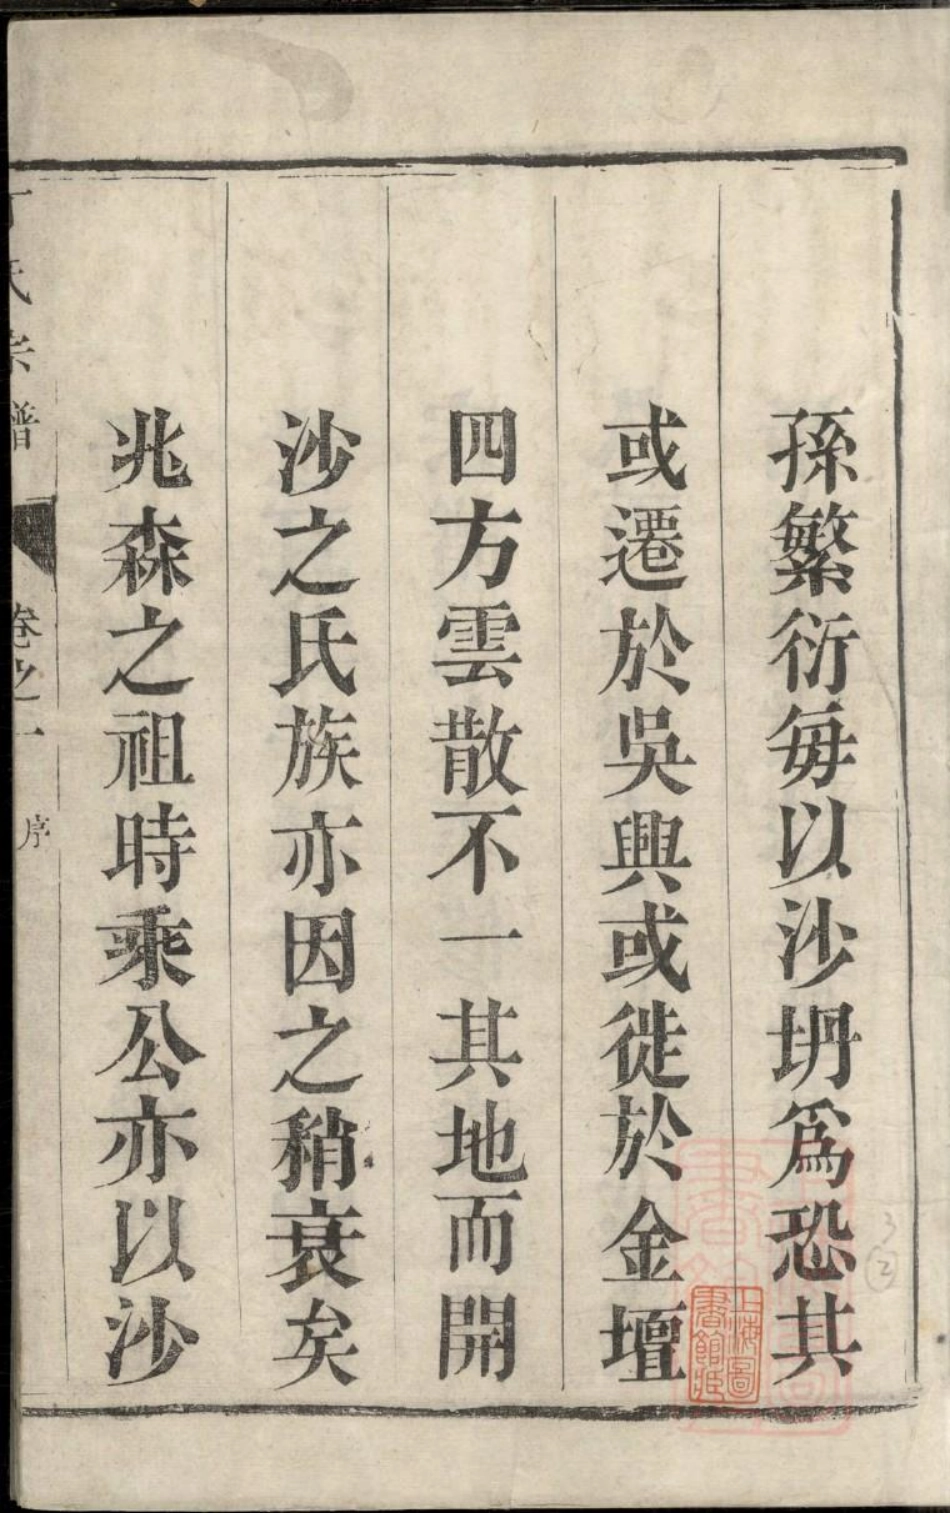 孫繁衍每以沙坍爲恐其
或遷於吳興或徙於金壇
四方雲散不一其地而開
沙之氏族亦因之稍衰矣
兆森之祖時乘公亦以沙
氏宗譜
卷之一
序
上海圖
書館藏